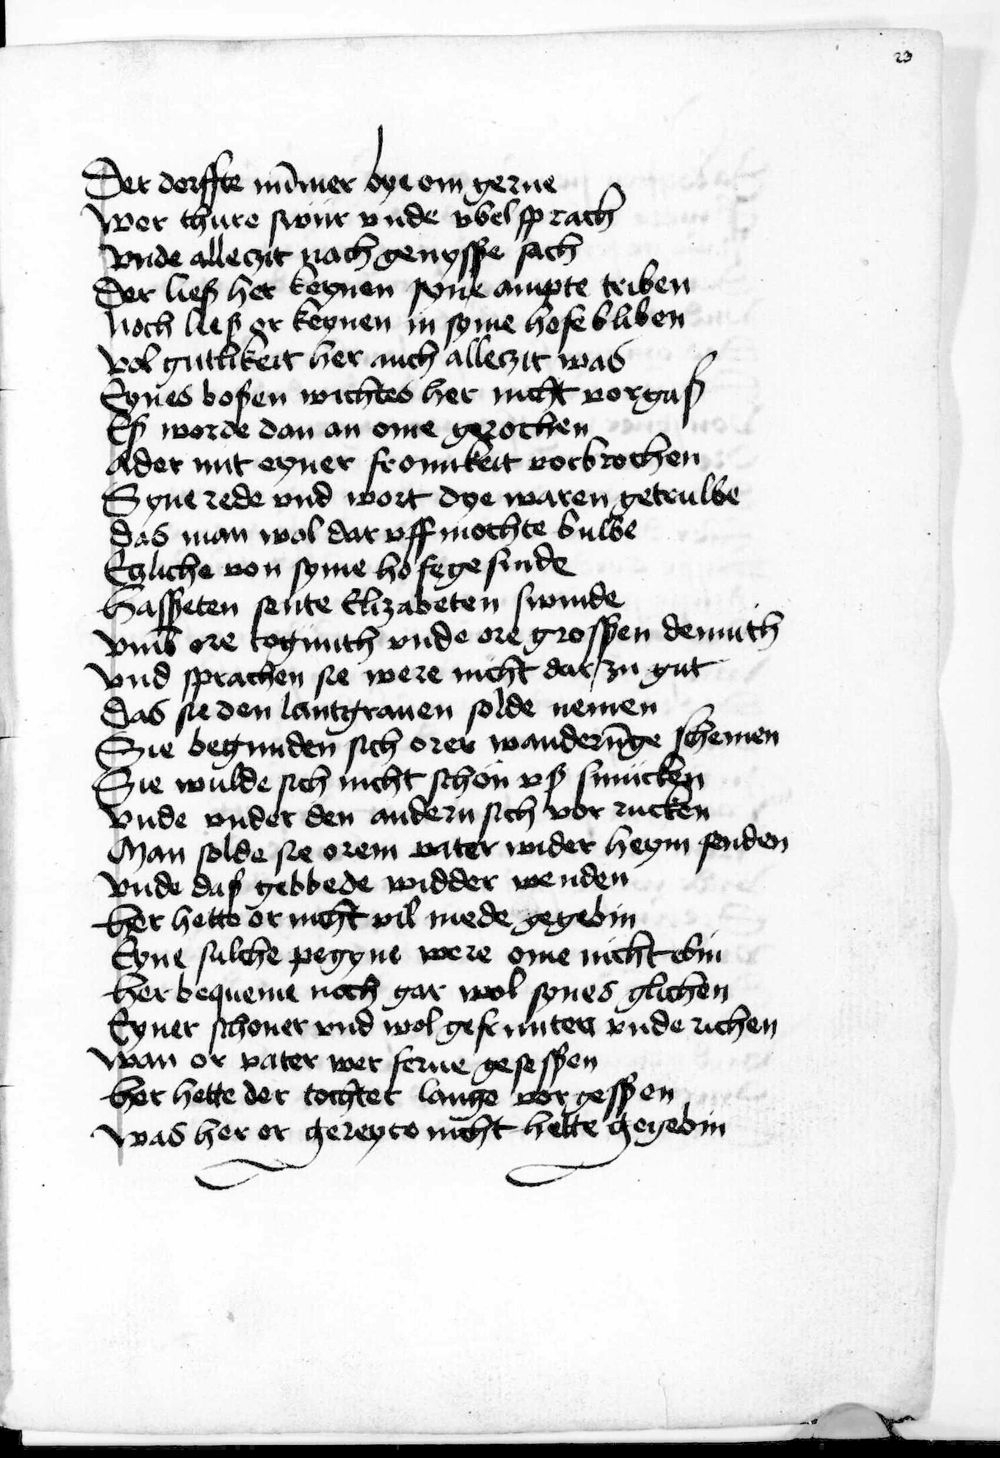 23
Der dorffte nūmer bye om gerne
Wer thure swür vnde vbel sprach
Vnde alleczit nach genysse sach
Der ließ her keynen syne ampte triben
Noch ließ er keynen in syme hofe bliben
Vol gutlikeit her auch alleczit was
Eynes boßen wichtes her nicht vorgaß
Eß worde dan an ome gerochen
Ader mit eyner fromikeit vorbrochen
Syne rede vnd wort dye waren getruwe
Das man wol dar vff mochte buwe
Etzliche von syme hofegesinde
Hasseten sente Elizabeten swinde
Vmb ore togunth vnde ore grossen demuth
Vnd sprachen sie were nicht dar zu gut
Das sie den lantgrauen solde nemen
Sie begunden sich orer wanderūge schemen
Sie wulde sich nicht schon vß smücken
Vnde vnder den andern sich vor rucken
Man solde sie orem vater wider heym senden
Vnde daß gebbede widder wenden
Her hette or nicht vil mede gegebin
Eyne sulche pegyne were ome nicht ebin
Her bequeme noch gar wol synes glichen
Eyner schoner vnd wol gefrunten vnde richen
Wan or vater wer ferne gesessen
Her hette der tochter lange vorgessen
Was her or gereyte nicht hette gegebin